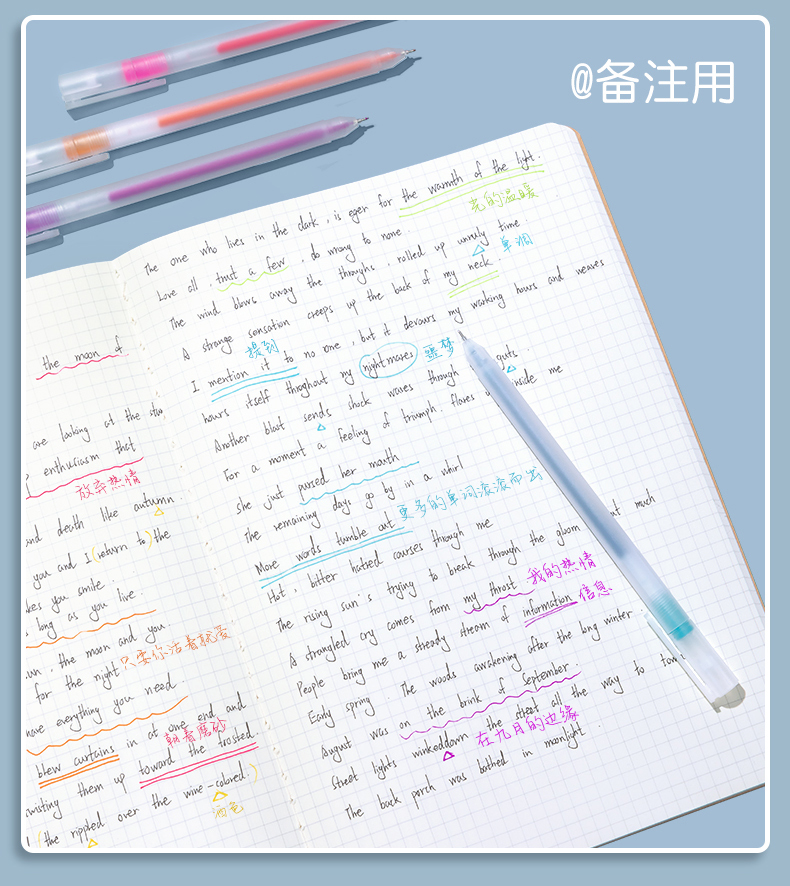 @备注用
the moon of
are looking at the
enthusiasm that
放弃热情
and death like autumn
you and I (return to) the
kes you smile.
long as you live.
un, the moon and you.
for the right
只要你活着就爱
have everything you need.
blew curtains in at one end and
朝着磨砂
twisting them up toward the frosted.
(the rippled over the wine-colored.)
酒色
The one who lives in the dark, is eger for the warmth of the light.
光的温暖
Love all, trust a few, do wrong to none.
The wind blows away the throughs, rolled up unruly time
单调
A strange sensation creeps up the back of my neck.
提到
I mention it to no one, but it devours my working hours and weaves
噩梦
hours itself throghout my nightmares
Another bloat sends shock waves through guts.
For a moment a feeling of triumph. flares inside me
She just pursed her mouth
The remaining days go by in a whirl
更多的单词滚滚而出
More words tumble out
Hot, bitter hatred courses through me
The rising sun's trying to break through the gloom out much
我的热情
A strangled cry comes from my throst
信息
People bring me a steady stream of information
Early spring The woods awakening after the long winter.
August was on the brink of September.
在九月的边缘
Street lights winkeddown the street all the way to town
The back porch was bathed in moonlight.